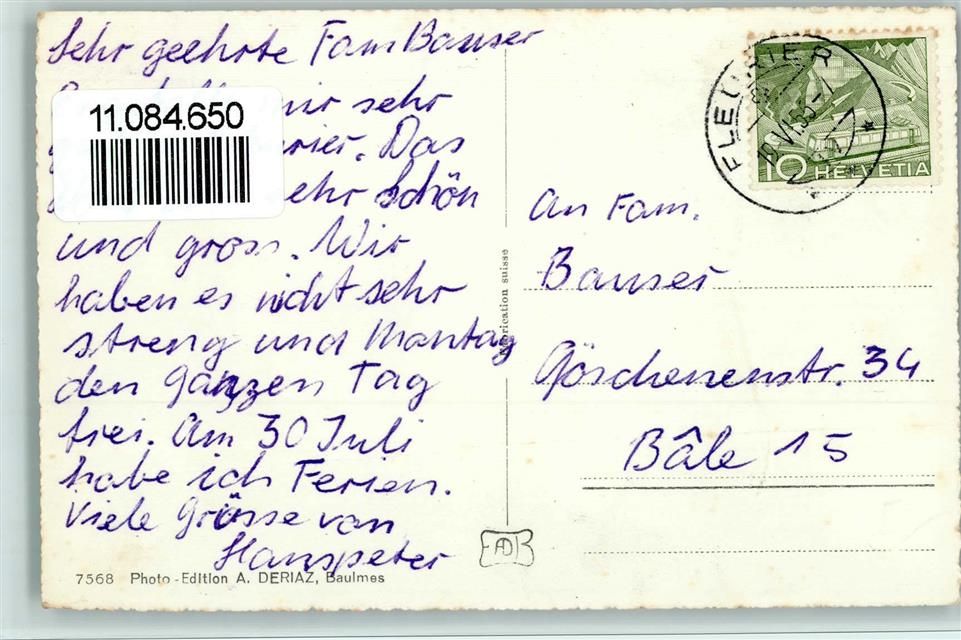 Sehr geehrte Fam Banser
mir sehr
11.084.650
Das
sehr schön
und gross. Wir
haben es nicht sehr
streng und Montag
den ganzen Tag
frei. Am 30 Juli
habe ich Ferien.
Viele Grüsse von
Hanspeter
7568 Photo-Edition A. DERIAZ, Baulmes
Fabrication suisse
FLEURIER
10 HELVETIA
An Fam.
Banser
Göschenenstr. 34
Bâle 15